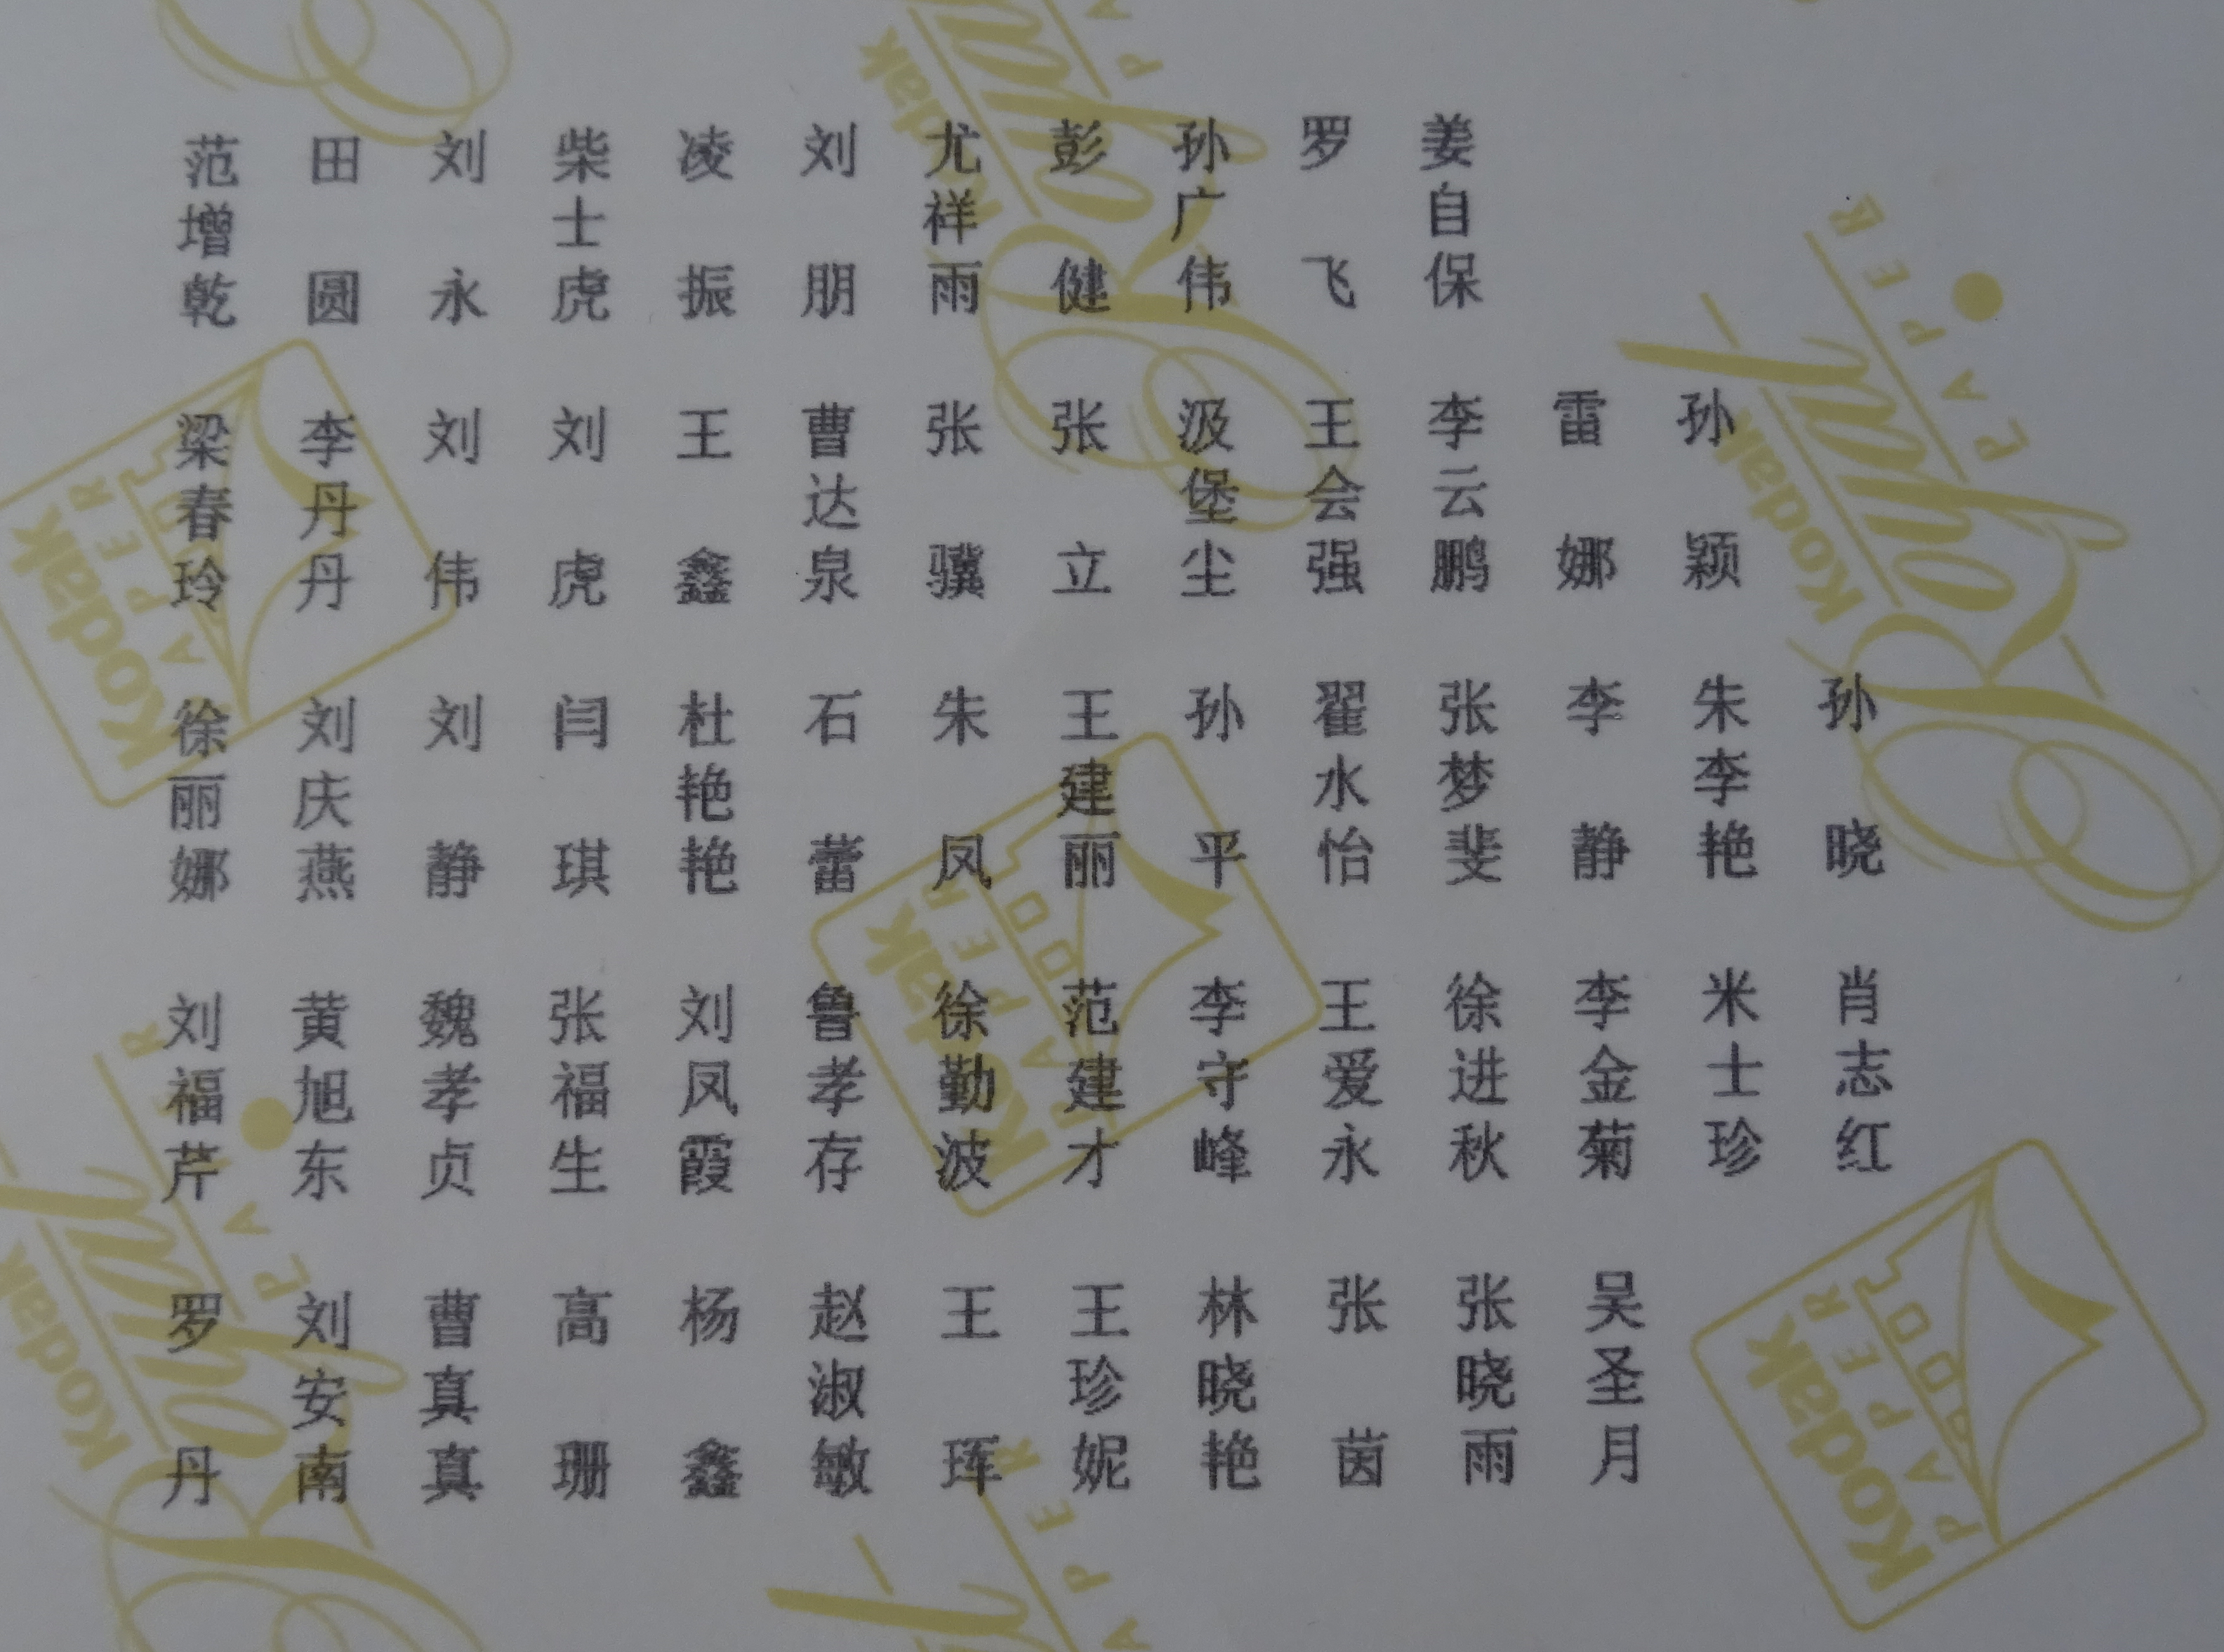 范增乾 田圆 刘永 柴士虎 凌振 刘朋 尤祥雨 彭健 孙广伟 罗飞 姜自保
梁春玲 李丹丹 刘伟 刘虎 王鑫 曹达泉 张骥 张立 汲堡尘 王会强 李云鹏 雷娜 孙颖
徐丽娜 刘庆燕 刘静 闫琪 杜艳艳 石蕾 朱凤 王建丽 孙平 翟水怡 张梦斐 李静 朱李艳 孙晓
刘福芹 黄旭东 魏孝贞 张福生 刘凤霞 鲁孝存 徐勤波 范建才 李守峰 王爱永 徐进秋 李金菊 米士珍 肖志红
罗丹 刘安南 曹真真 高珊 杨鑫 赵淑敏 王珲 王珍妮 林晓艳 张茵 张晓雨 吴圣月
Kodak Royal PAPER
Kodak PAPER
Kodak Royal PAPER
Kodak PAPER
Kodak Royal PAPER
Kodak PAPER
PAPER